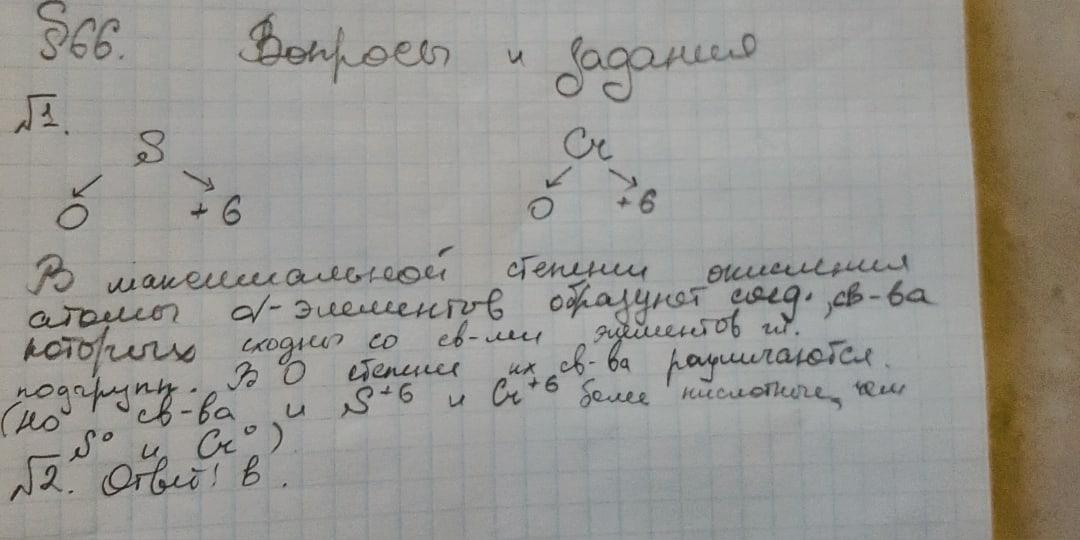 §66. Вопросы и задания
√1.
S Cr
0 +6 0 +6
В максимальной степени окисления
атомы d-элементов образуют соед., св-ва
которых сходны со св-ми элементов гл.
подгрупп. В 0 степени их св-ва различаются.
(но св-ва и S⁺⁶ и Cr⁺⁶ более кислотные, чем
S⁰ и Cr⁰).
√2. Ответ! в.